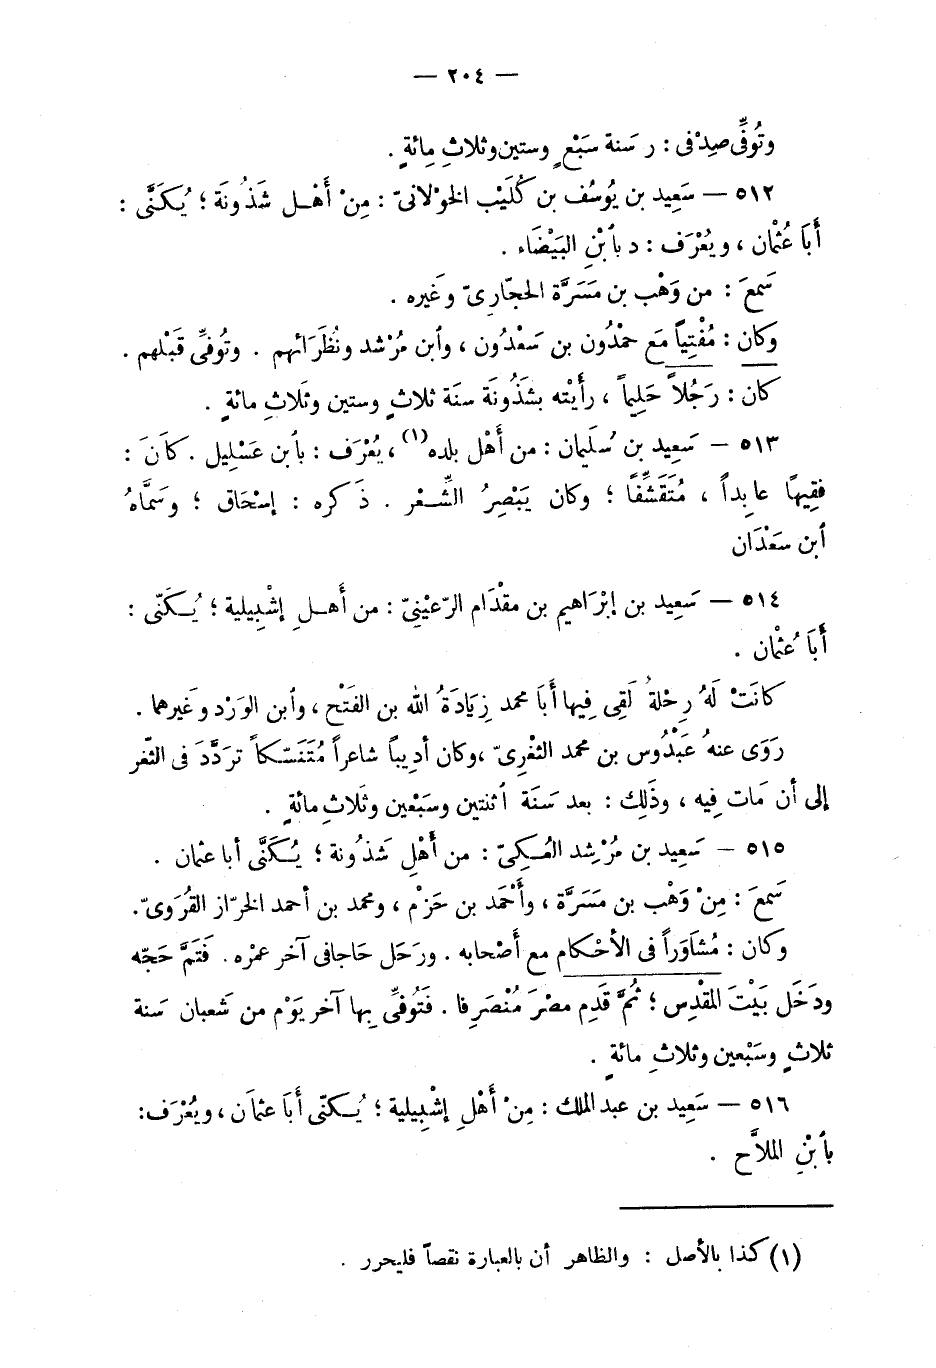 — ٢٠٤ —
وتُوفِّى صِدْفى : ر سَنة سَبْعٍ وستين وثلاثِ مِائةٍ .
٥١٢ — سَعِيد بن يُوسُف بن كُلَيْب الخوْلانىّ : مِنْ أَهْـل شَذُونَة ؛ يُكَنَّى :
أَبَا عُثْمان ، ويُعْرَف : د بأبْنِ البَيْضَاء .
سَمعَ : من وَهْب بن مَسَرَّة الحجّارىّ وغَيره .
وكان : مُفْتِياً مَع حمْدُون بن سَعْدُون ، وأبن مُرْشد ونُظَرَائهم . وتُوفىِّ قَبْلهم .
كان : رَجُلاً حَلِيماً ، رأَيْته بشَذُونَة سنَة ثلاثٍ وستين وثَلاثِ مائةٍ .
٥١٣ — سَعِيد بن سُلَيمان : من أَهْل بلده (١) ، يُعْرَف : بأبن عَسْلِيل . كَانَ :
فقِيهاً عابِداً ، مُتَقَشِّفًا ؛ وكان يَبْصِرُ الشِّـعْر . ذَكره : إسْحَاق ؛ وسَمَّاهُ
أبن سَعْدَان
٥١٤ — سَعِيد بن إبْرَاهيم بن مقْدَام الرّعيْنِىّ : من أَهـلِ إشْبِيلية ؛ يُـكَنّى :
أَبَا عُثْمان .
كانَتْ لَهُ رِحْلةُ لَقِى فِيها أَبَا محمد زِيَادَةُ الله بن الفَتْح ، وأبن الوَرْد وغَيرهما .
رَوَى عنهُ عَبْدُوس بن محمد الثغْرِىّ ، وكان أدِيباً شاعراً مُتَنَسّكاً تَردَّدَ فى الثّغر
إلى أن مَات فِيه ، وذَلِك : بعد سَنَة أثنتين وسَبْعين وثَلاثِ مائةٍ .
٥١٥ — سَعِيد بن مُرْشِد العُـكِىّ : من أَهْلِ شَذُونة ؛ يُـكَنَّى أبا عثمان .
سَمعَ : مِنْ وَهْب بن مَسَرَّة ، وأَحْمَد بن حَزْم ، ومحمد بن أحمد الخرّاز القَرُوىّ .
وكان : مُشاَوَراً فى الأحْكام مع أَصْحابه . ورَحَل حَاجا فى آخر عمْره . فَتَمَّ حَجّه
ودَخَل بَيْتَ المَقْدِس ؛ ثُمَّ قَدِم مصْرَ مُنْصَرِفا . فَتُوفىِّ بِها آخر يَوْم من شَعبان سَنة
ثلاثٍ وسَبْعين وثلاثِ مائةٍ .
٥١٦ — سَعِيد بن عبد الملك : مِنْ أَهْلِ إشْبِيلية ؛ يُـكنّى أَبَا عثمَان ، ويُعْرَف :
بأبْنِ الملاَّح .
(١) كذا بالأصل : والظاهر أن بالعبارة نقصاً فليحرر .